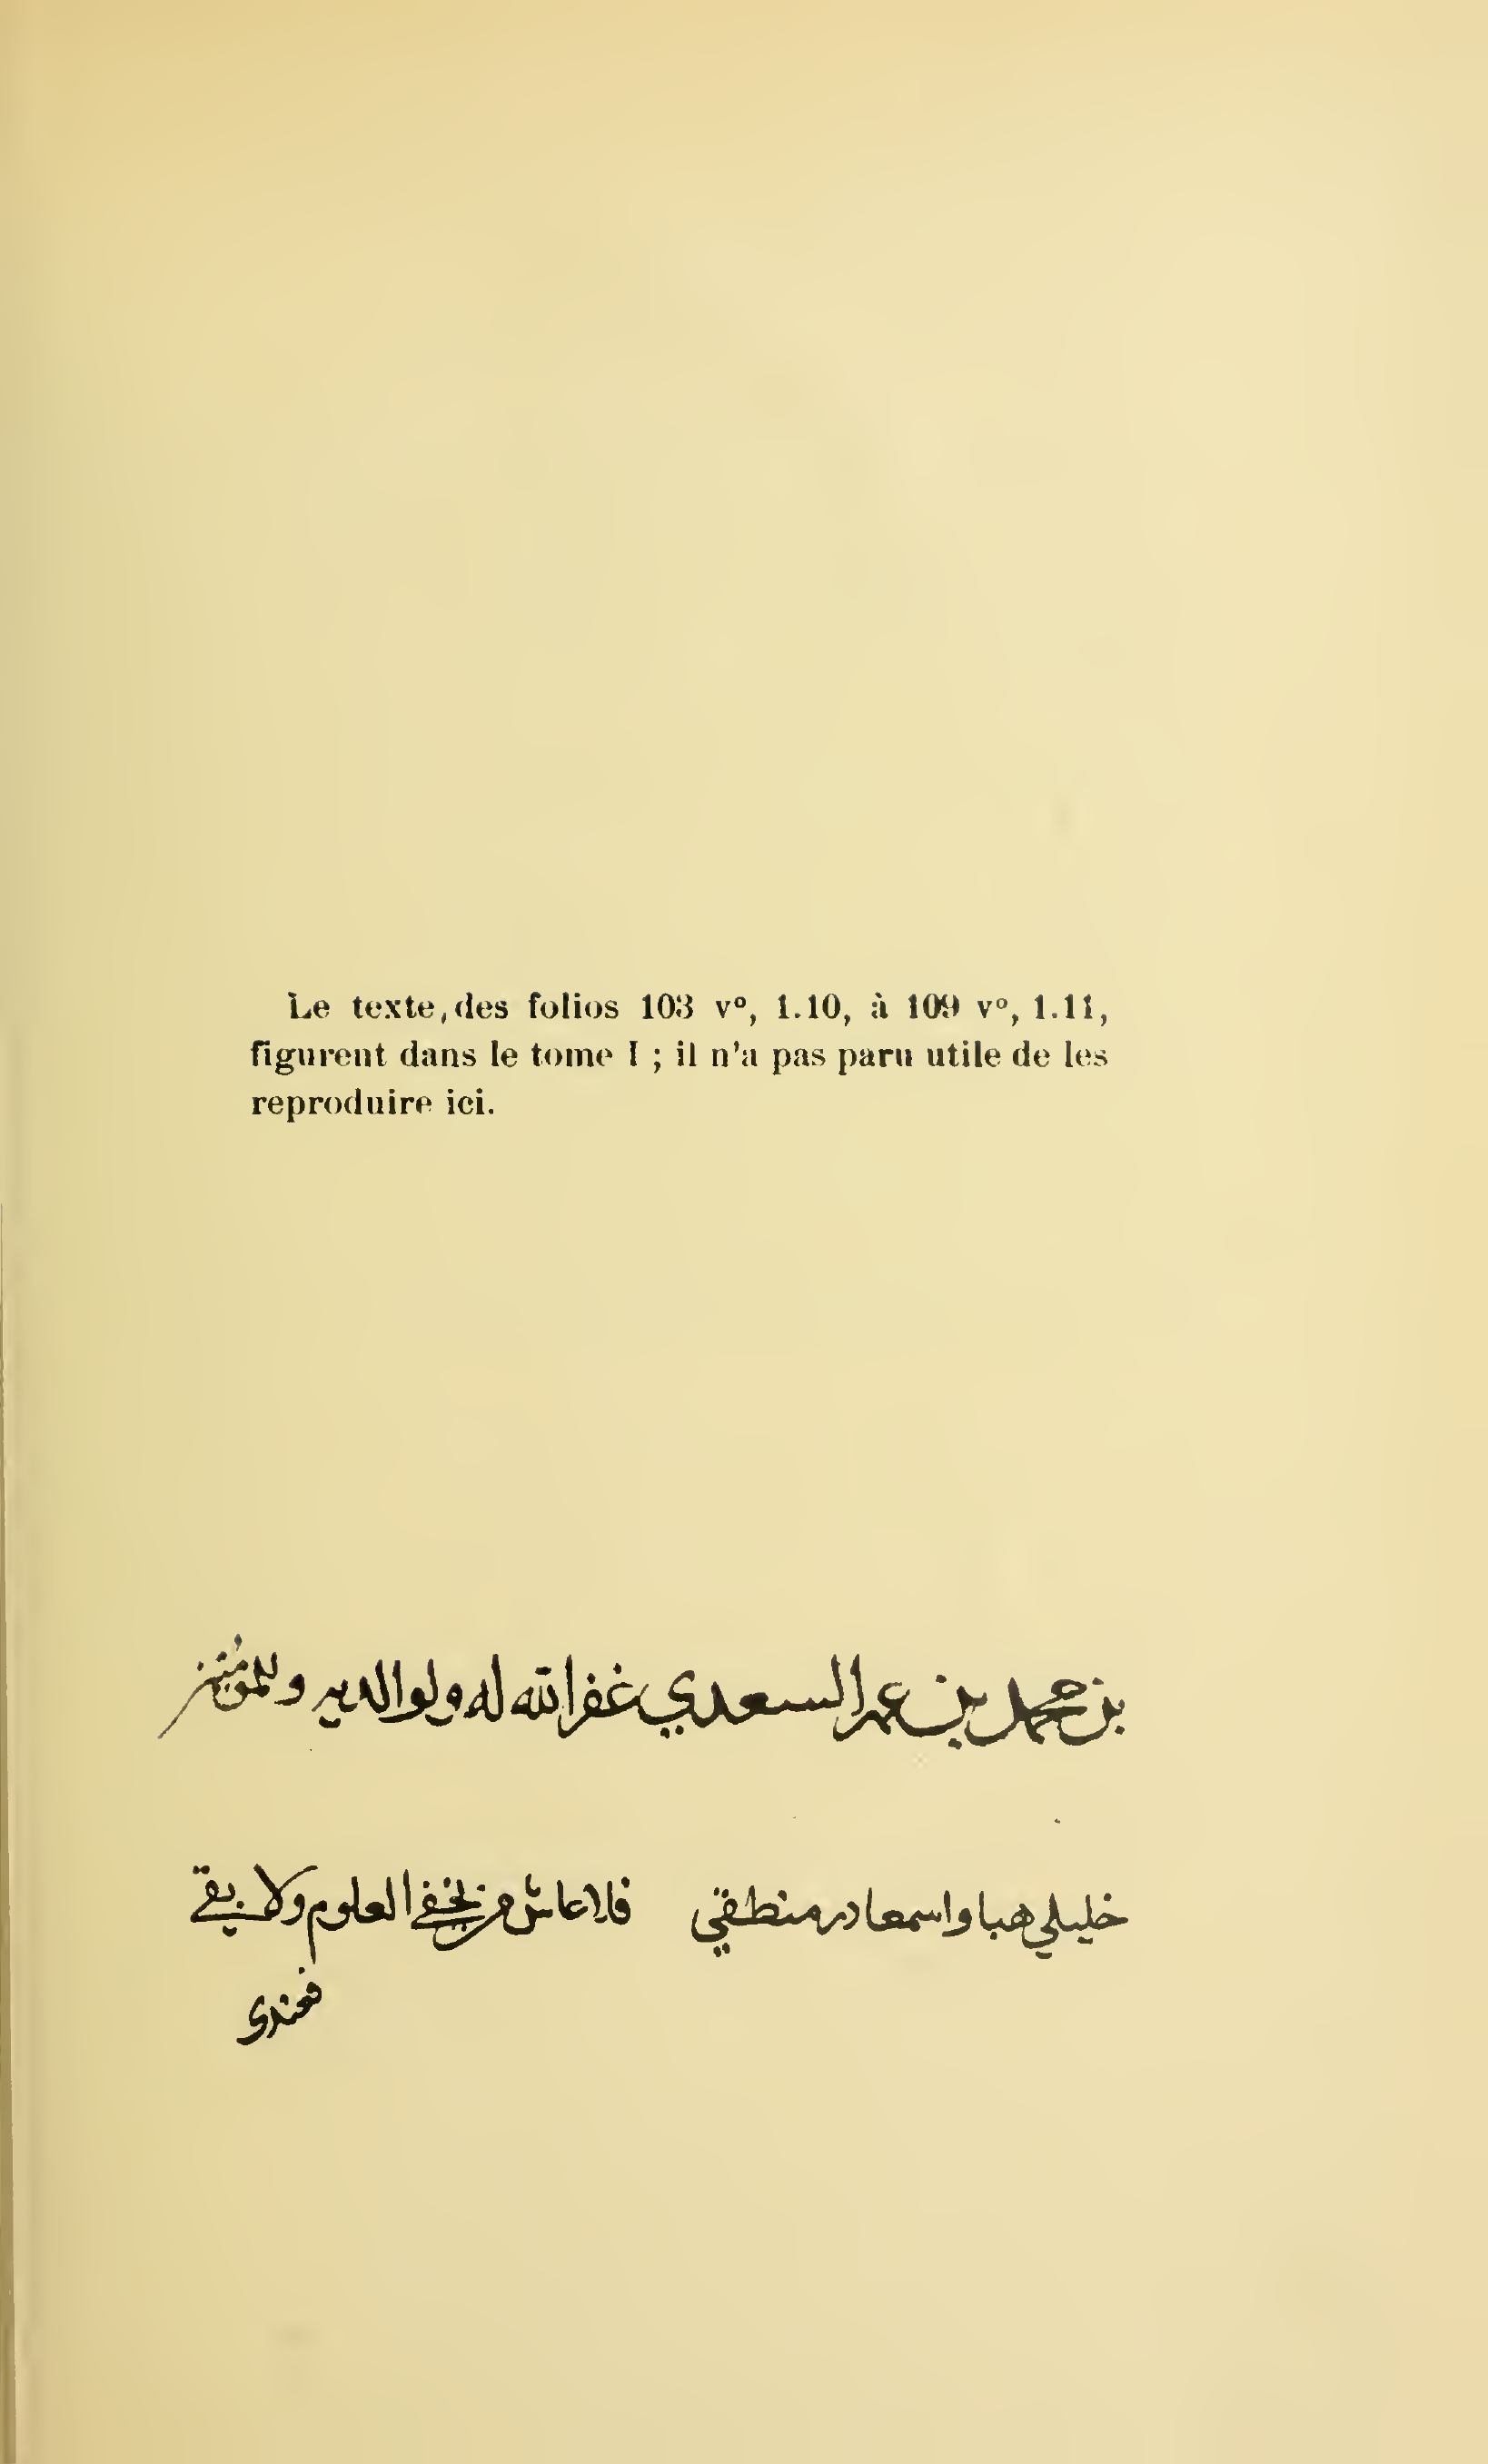 Le texte, des folios 103 v°, l.10, à 109 v°, l.11,
figurent dans le tome I ; il n'a pas paru utile de les
reproduire ici.
بن محمد بن عمر السعدي غفر الله له ولوالديه وللمؤمنين
خليلي هبا واسمعا در منطقي فلا عاش من يخفي العلوم ولا بقي